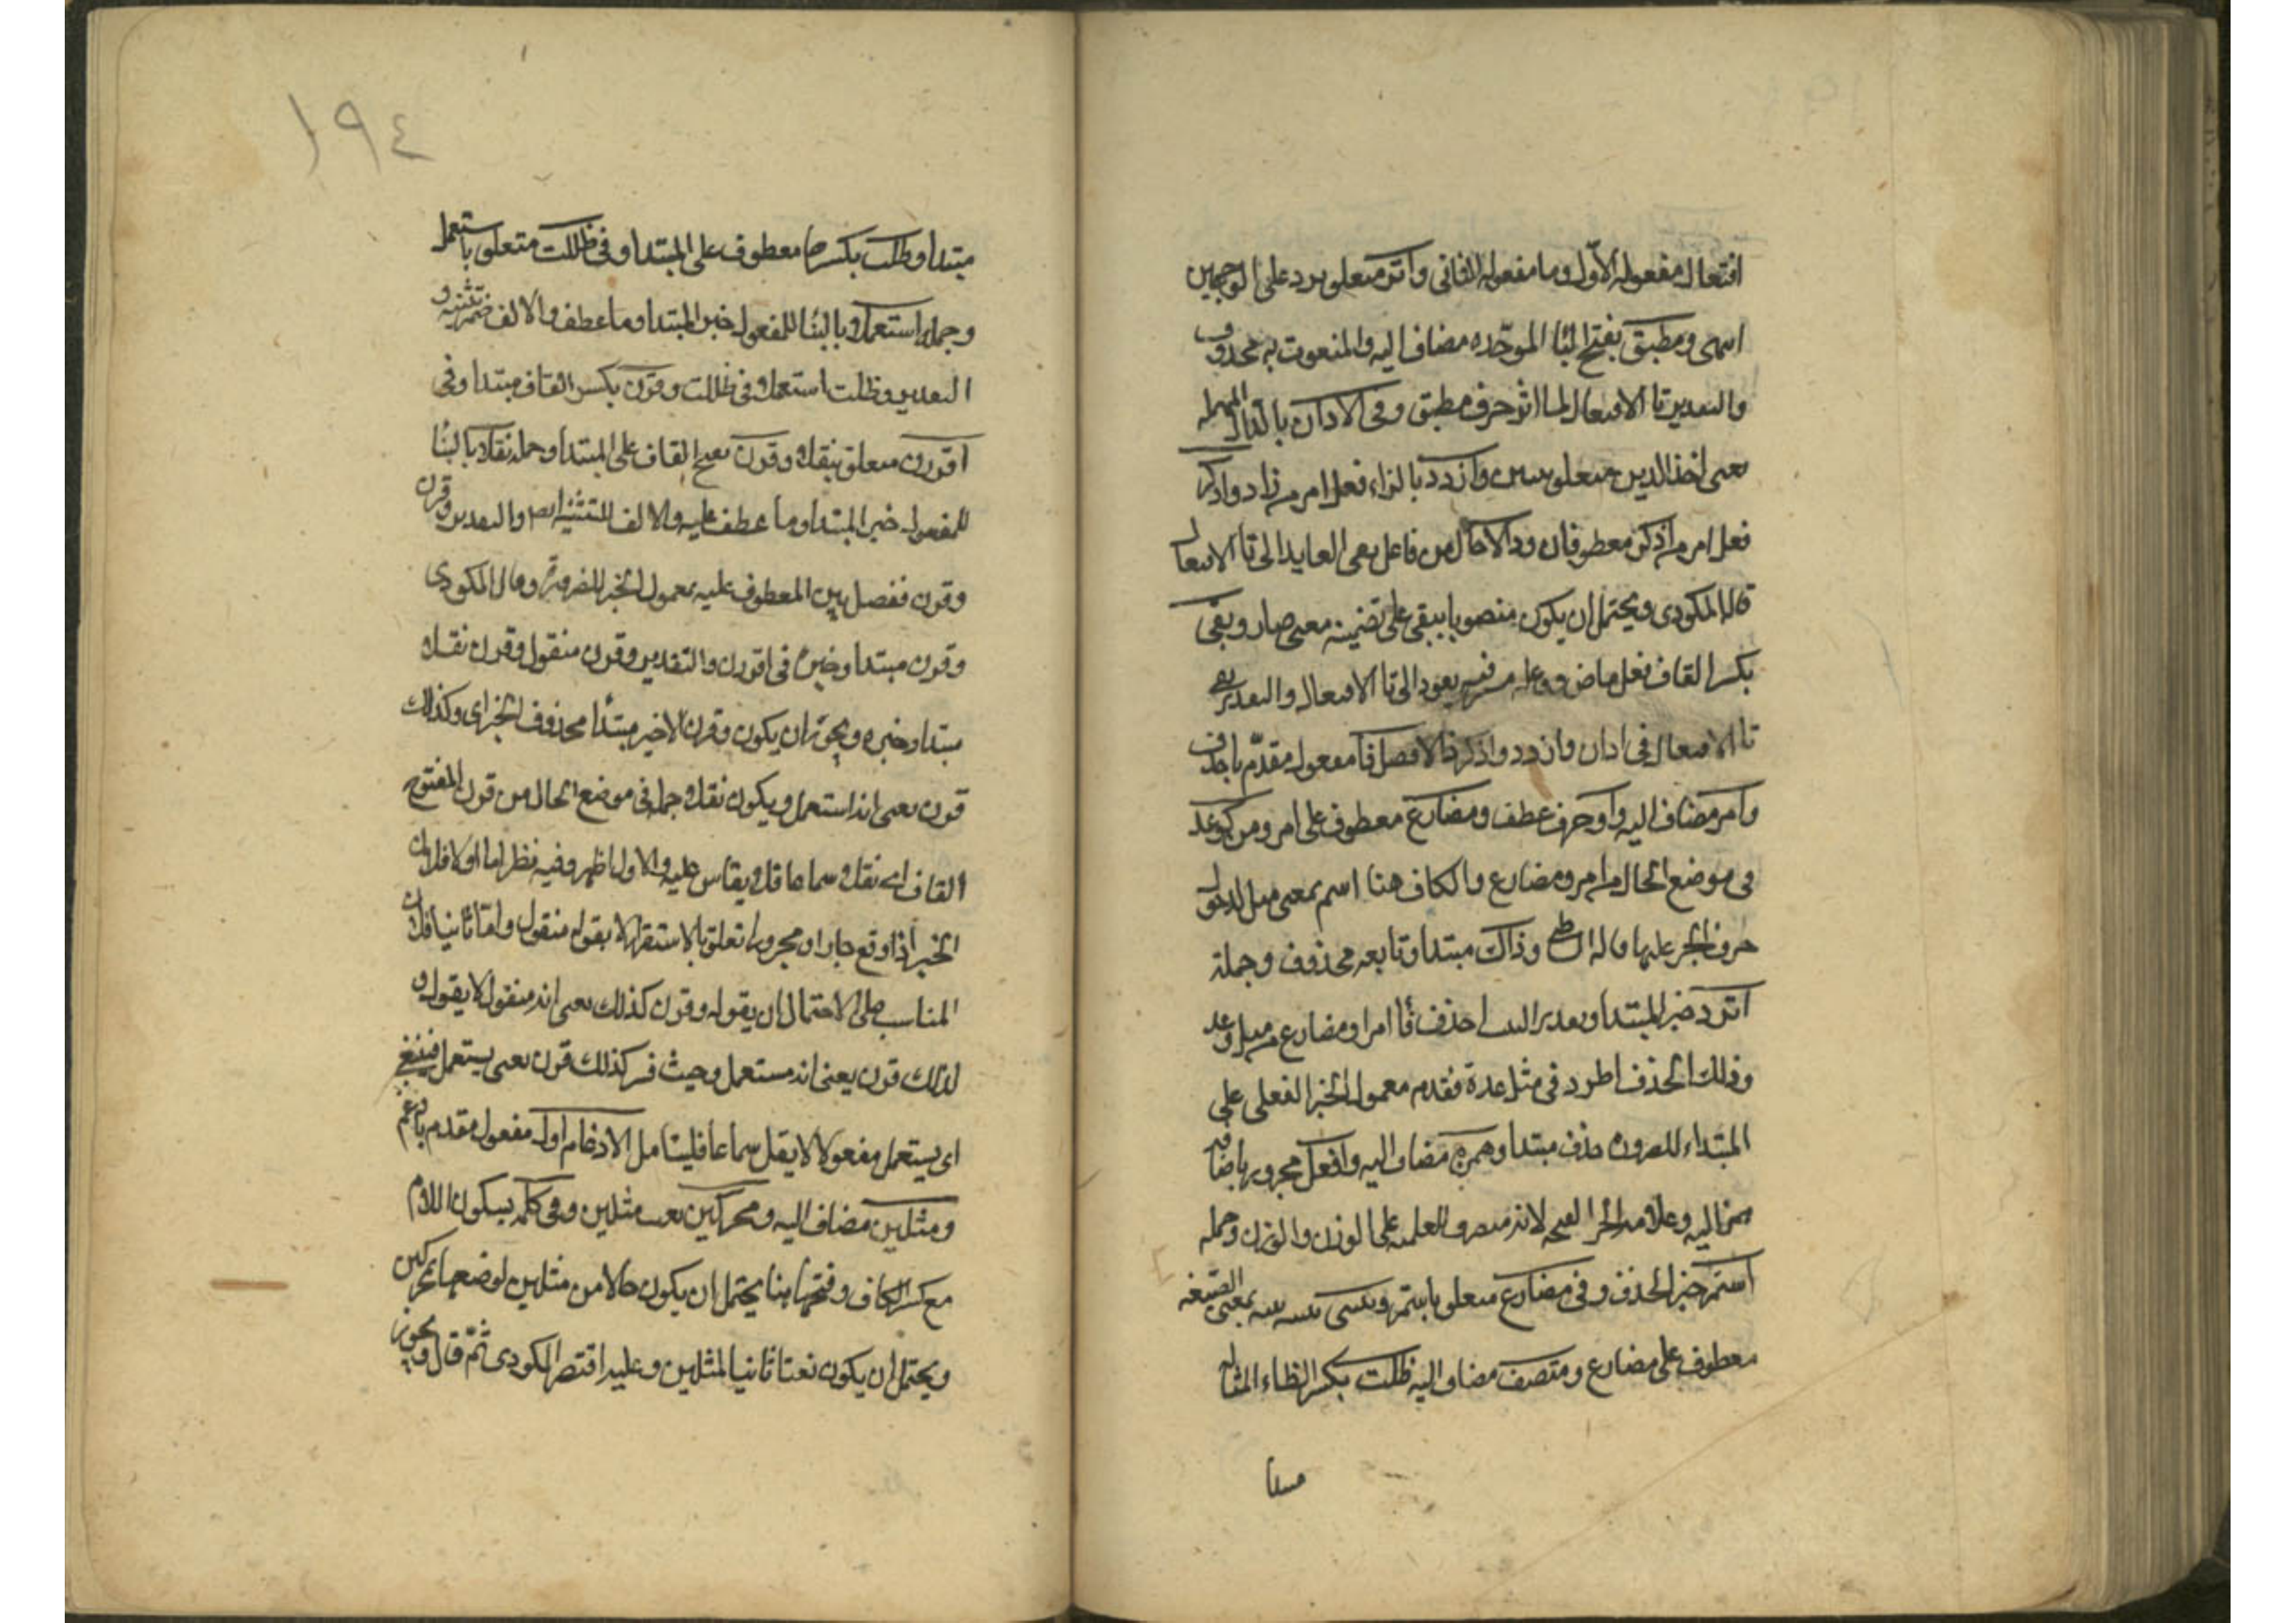 افتعال مفعوله الاول وما مفعوله الثانى واثر متعلق برد على الوجهين
اسمى ومطبق بفتح البا الموحده مضاف اليه والمنعوت به محذوف
والتقدير تا الافتعال لما اثر حرف مطبق وفى الادان بالدال المهمله
بمعنى اخذ الدين متعلق وازدد بالزاء فعل امر من زاد وادكر
فعل امر من اذكر معطوفان ودالا حال من فاعل بقى العايد الى تا الافتعال
قاله المكودى ويحتمل ان يكون منصوبا ببقى على تضمينه معنى صار وبقى
بكسر القاف فعل ماض وفاعله مستتر فيه يعود الى تا الافتعال والتقدير بقى
تا الافتعال فى ادان وازدد وادكر دالا فصل فا مفعول مقدم باحذف
وامر مضاف اليه واو حرف عطف ومضارع معطوف على امر ومن كوعد
فى موضع الحال من امر ومضارع والكاف هنا اسم بمعنى مثل لدخول
حرف الجر عليها قاله وذاك مبتدا وتابعه محذوف وجملة
اترد خبر المبتدا وتقدير البيت احذف فا امر او مضارع من مثل وعد
وذلك الحذف اطرد فى مثل عدة فقدم معمول الخبر الفعلى على
المبتداء للضروره حذف مبتدا وهمز مضاف اليه وافعل مجرور باضافه
همز اليه وعلامه الجر الفتحه لانه للعلميه على الوزن والوزن وجمله
استمر خبر الحذف وفى مضارع متعلق باستمر وبنيتى بمعنى الصيغه
معطوف على مضارع ومتصف مضاف اليه ظلت بكسر الظاء المشاله
مبتدا
١٩٤
مبتدا وظلت بكسرها معطوف على المبتدا وفى ظللت متعلق باستعمل
وجمله استعملا وبالبنا للمفعول خبر المبتدا وما عطف والالف ضمير تثنيه و
التقدير وظلت استعملا فى ظللت وقرن بكسر القاف مبتدا وفى
اقررن متعلق بنقلا وقرن بفتح القاف على المبتدا وجمله نقلا بالبنا
للمفعول خبر المبتدا وما عطف عليه والالف للتثنيه ايضا والتقدير وقرن
وقرن ففصل بين المعطوف عليه بمعمول الخبر للضروره وقال المكودى
وقرن مبتدا وخبره فى اقررن والتقدير وقرن منقول وقرن نقلا
مبتدا وخبره ويجوز ان يكون وقرن الاخير مبتدأ محذوف الخبر اى وكذلك
قرن بمعنى انه استعمل ويكون نقلا جمله فى موضع الحال من قرن المفتوح
القاف اى نقلا سماعا فلا يقاس عليه والاول اظهر وفيه نظر اما اولا فلان
الخبر اذا وقع جارا ومجرورا تعلق بالاستقرار لا بقوله منقول واما ثانيا فلان
المناسب على الاحتمال ان يقوله وقرن كذلك بمعنى انه منقول لا يقول و
لذلك قرن يعنى انه مستعمل وحيث فسر كذلك قرن بمعنى يستعمل فينبغى
اى يستعمل مفعولا لا ينقل سماعا فليتامل الادغام اول مفعول مقدم بادغم
ومثلين مضاف اليه ومحركين نعت مثلين وفى كلمه بسكون اللام
مع كسر الكاف وفتحها هنا يحتمل ان يكون حالا من مثلين لوصفهما بمحركين
ويحتمل ان يكون نعتا ثانيا لمثلين وعليه اقتصر المكودى ثم قال ويجوز